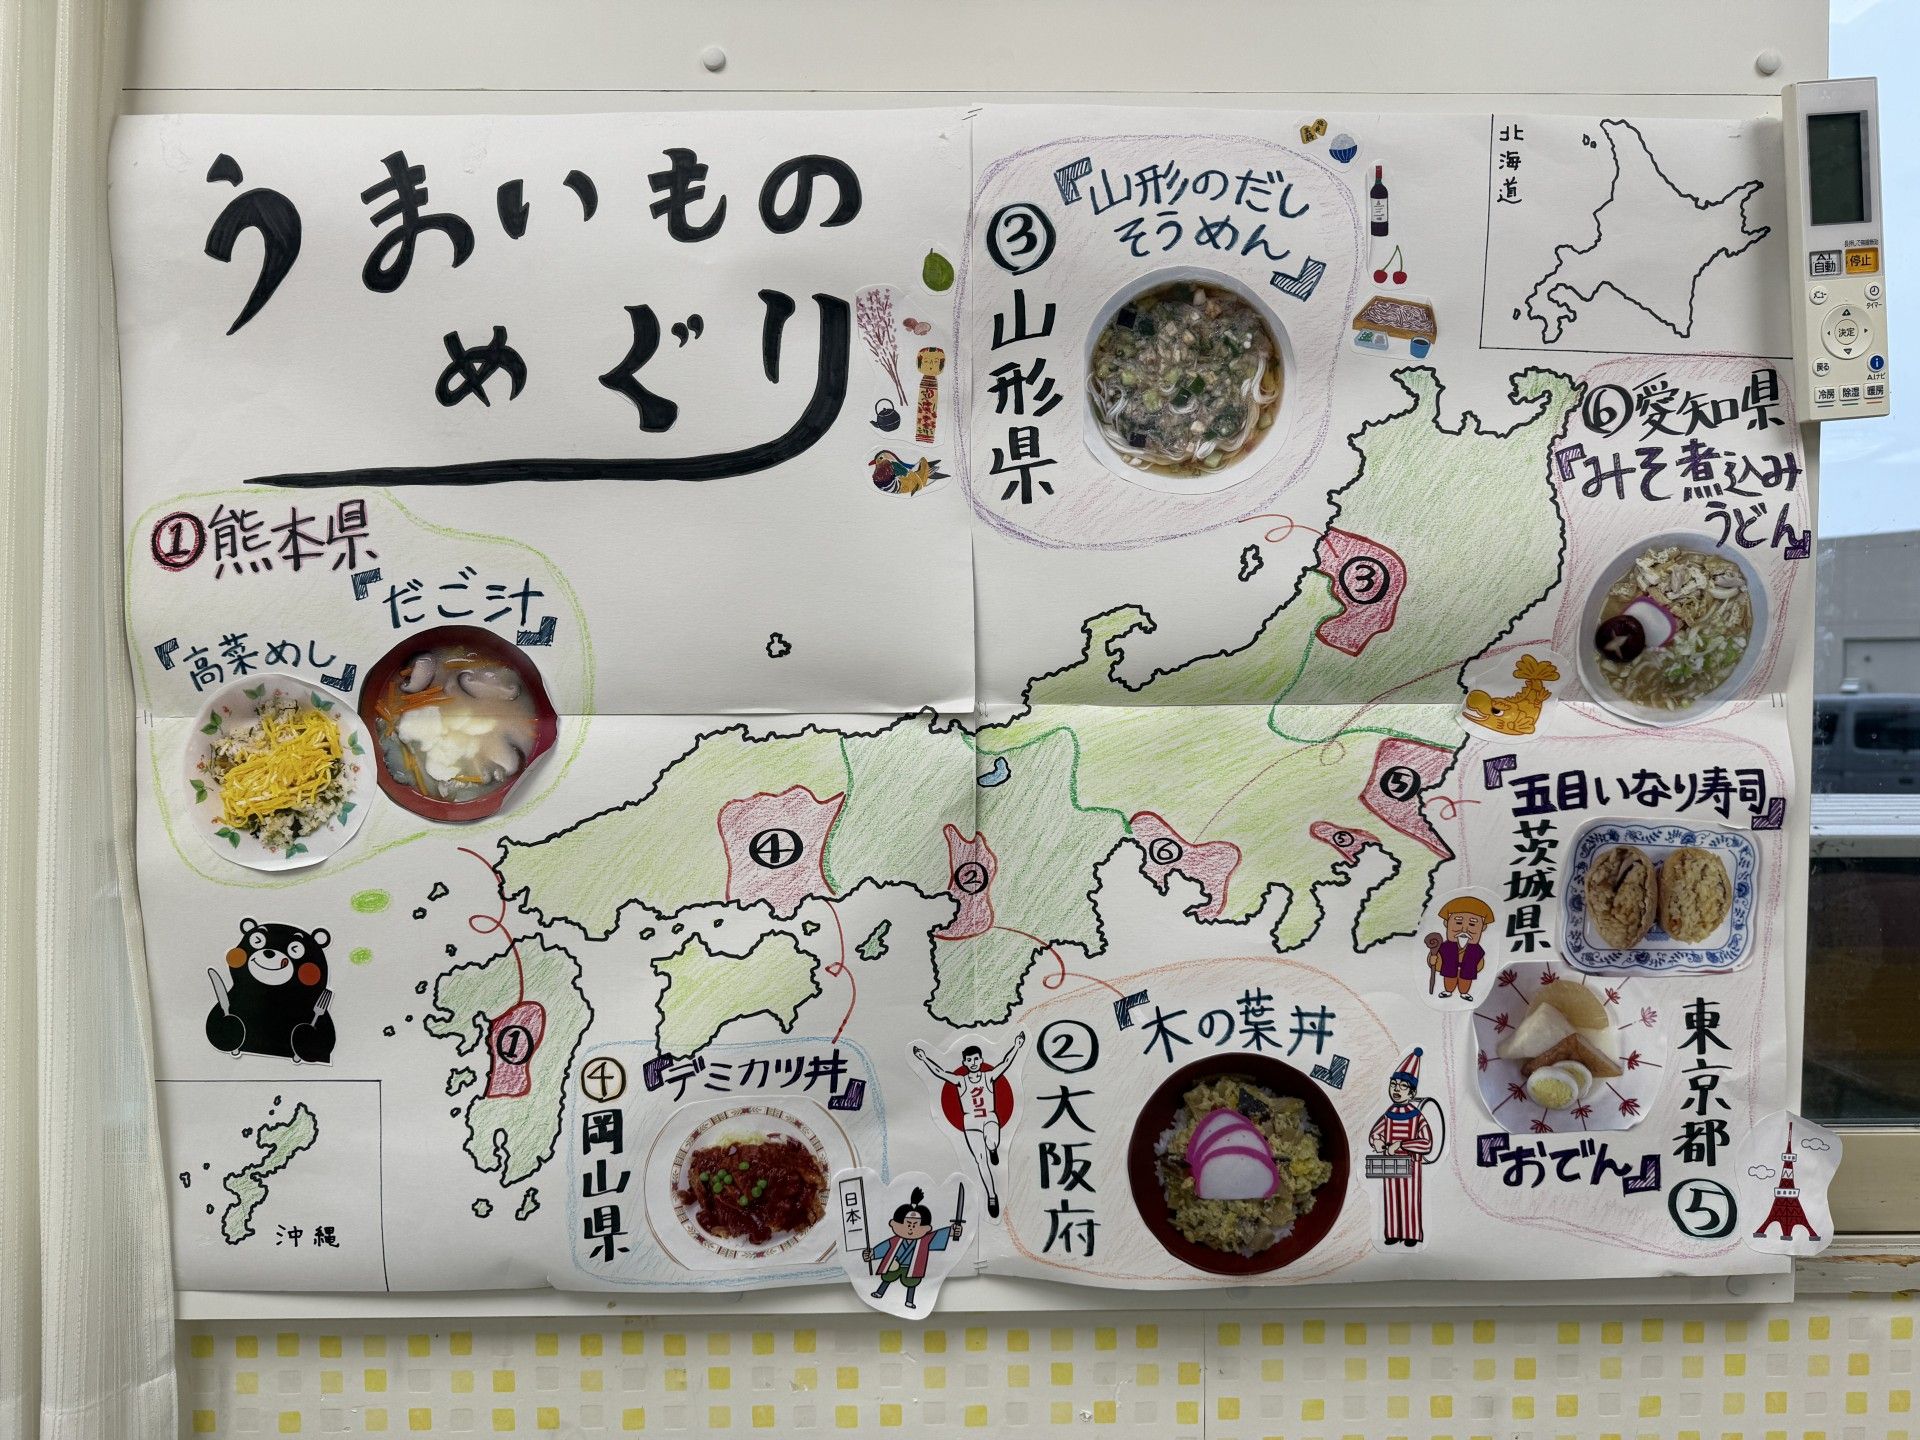 うまいもの
めぐり
①熊本県
『だご汁』
『高菜めし』
③山形県
『山形のだし
そうめん』
北海道
⑥愛知県
『みそ煮込み
うどん』
『五目いなり寿司』
茨城県
東京都⑤
『おでん』
②大阪府
『木の葉丼』
④岡山県
『デミカツ丼』
沖縄
①
②
③
④
⑤
⑤
⑥
グリコ
日本一
自動
停止
メニュー
タイマー
決定
戻る
冷房
除湿
暖房